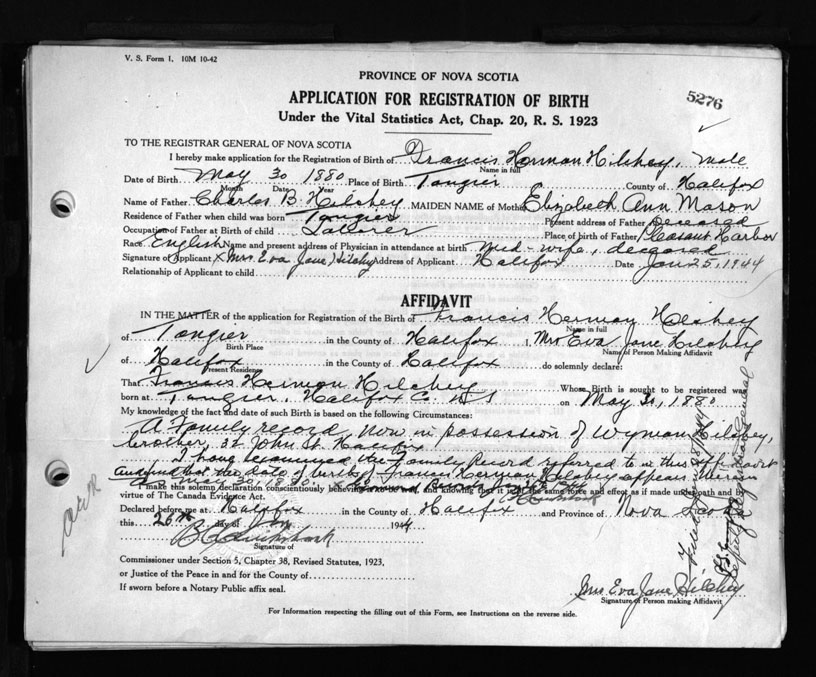 V. S. Form 1, 10M 10-42
PROVINCE OF NOVA SCOTIA
5276
APPLICATION FOR REGISTRATION OF BIRTH
Under the Vital Statistics Act, Chap. 20, R. S. 1923
TO THE REGISTRAR GENERAL OF NOVA SCOTIA
I hereby make application for the Registration of Birth of Francis Herman Hilchey, male
Name in full
Date of Birth May 30 1880 Place of Birth Tangier County of Halifax
Month Date Year
Name of Father Charles B. Hilchey MAIDEN NAME of Mother Elizabeth Ann Mason
Residence of Father when child was born Tangier Present address of Father Deceased
Occupation of Father at Birth of child Laborer Place of birth of Father Pleasant Harbor
Race English Name and present address of Physician in attendance at birth Mid-wife, deceased
Signature of Applicant X Mrs. Eva Jane Hilchey Address of Applicant Halifax Date Jan 25, 1944
Relationship of Applicant to child
AFFIDAVIT
IN THE MATTER of the application for Registration of the Birth of Francis Herman Hilchey
Name in full
of Tangier in the County of Halifax I, Mrs Eva Jane Hilchey
Birth Place Name of Person Making Affidavit
of Halifax in the County of Halifax do solemnly declare:
Present Residence
That Francis Herman Hilchey Whose Birth is sought to be registered was
born at Tangier, Halifax Co. N S on May 30, 1880
My knowledge of the fact and date of such Birth is based on the following Circumstances:
A Family record, now in possession of Wyman Hilchey,
brother, 32 John St. Halifax
I have examined the Family Record referred to in this affidavit
and find that the date of birth of Francis Herman Hilchey appears thereon
as May 30, 1880.
I make this solemn declaration conscientiously believing and knowing that it is of the same force and effect as if made under oath and by
virtue of The Canada Evidence Act.
Declared before me at Halifax in the County of Halifax and Province of Nova Scotia
this 26th day of Jan 1944
Signature of
Commissioner under Section 5, Chapter 38, Revised Statutes, 1923,
or Justice of the Peace in and for the County of
If sworn before a Notary Public affix seal.
Mrs Eva Jane Hilchey
Signature of Person making Affidavit
For Information respecting the filling out of this Form, see Instructions on the reverse side.
Filed Jan 28/1944
Deputy Registrar General